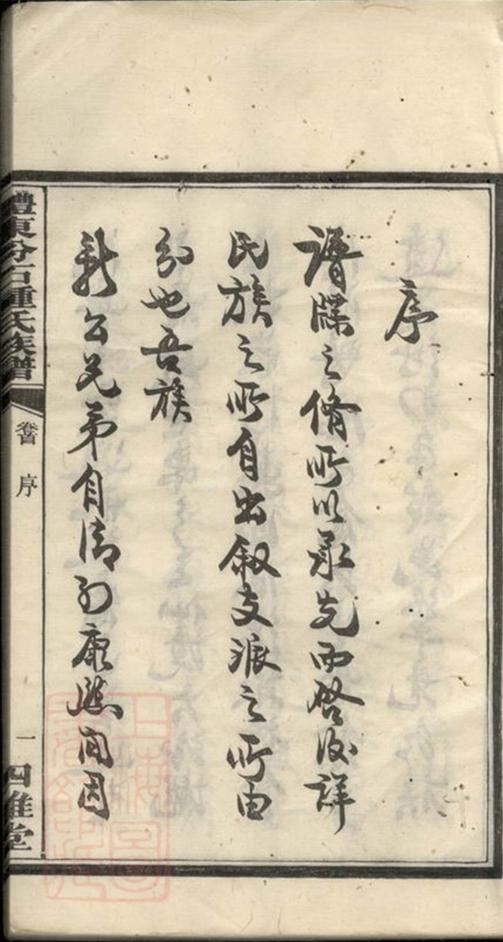 序
譜牒之脩所以承先而啓後詳
氏族之所自出叙支派之所由
分也吾族
公兄弟自清初康熙間因
醴東分石鍾氏族譜
卷首 序
一
四維堂
上海圖書館藏